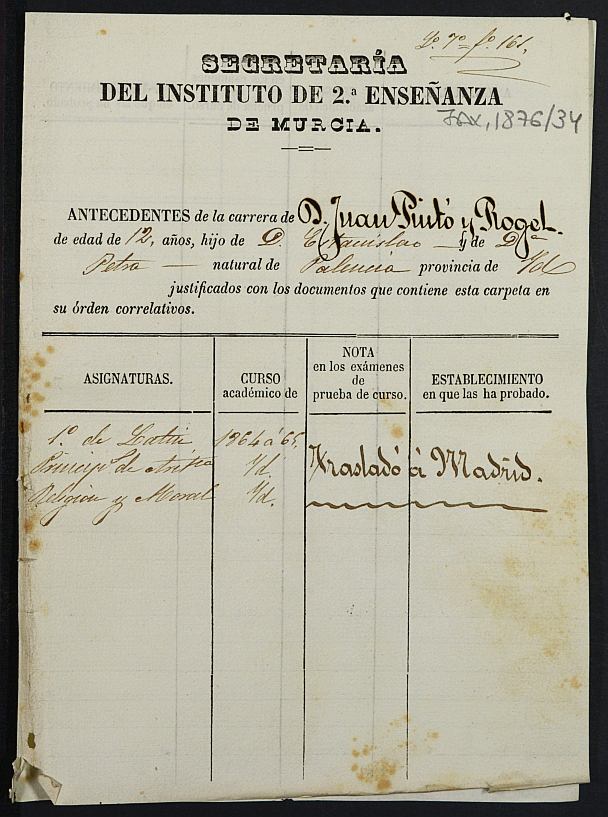 Lo. 7o fo. 161,
SECRETARÍA
DEL INSTITUTO DE 2.ª ENSEÑANZA
DE MURCIA.
1876/34
ANTECEDENTES de la carrera de D. Juan Pintó y Roget.
de edad de 12, años, hijo de D. Estanislao y de Da
Petra natural de Palencia provincia de Yd
justificados con los documentos que contiene esta carpeta en
su órden correlativos.
ASIGNATURAS.
CURSO
académico de
NOTA
en los exámenes
de
prueba de curso.
ESTABLECIMIENTO
en que las ha probado.
1o. de Latin 1864 á 65.
Princips de Aritca Yd.
Religion y Moral Yd.
Trasladó á Madrid.